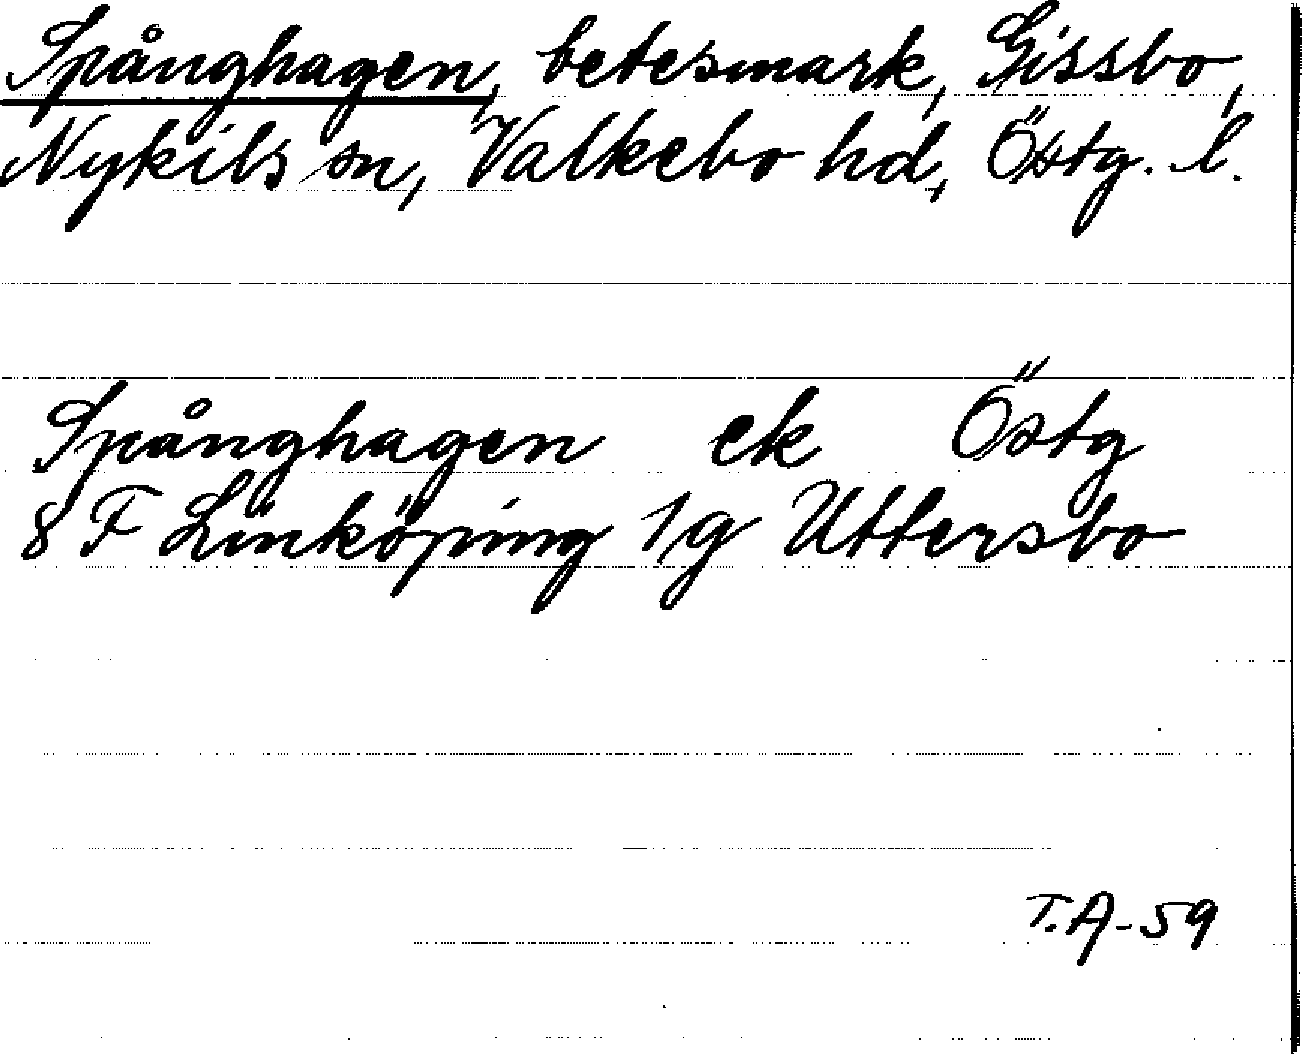 Spånghagen, betesmark, Gissbo,
Nykils sn, Valkebo hd, Östg. l.
Spånghagen ek Östg
8 F Linköping 1g Uttersbo
T.A-59